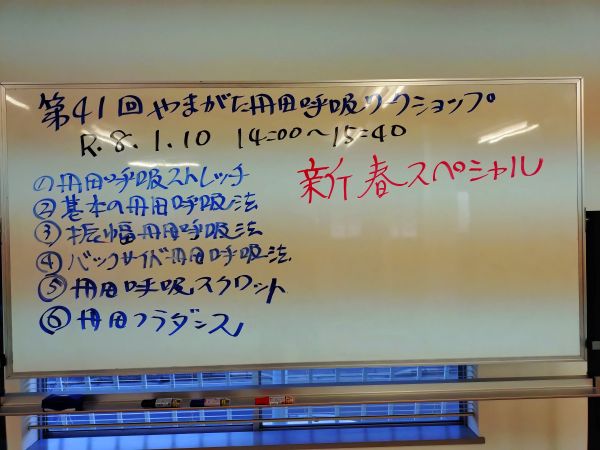 第41回やまがた丹田呼吸ワークショップ
R.8.1.10 14:00～15:40
新春スペシャル
①丹田呼吸ストレッチ
②基本の丹田呼吸法
③振幅丹田呼吸法
④バックサイド丹田呼吸法
⑤丹田呼吸スクワット
⑥丹田フラダンス